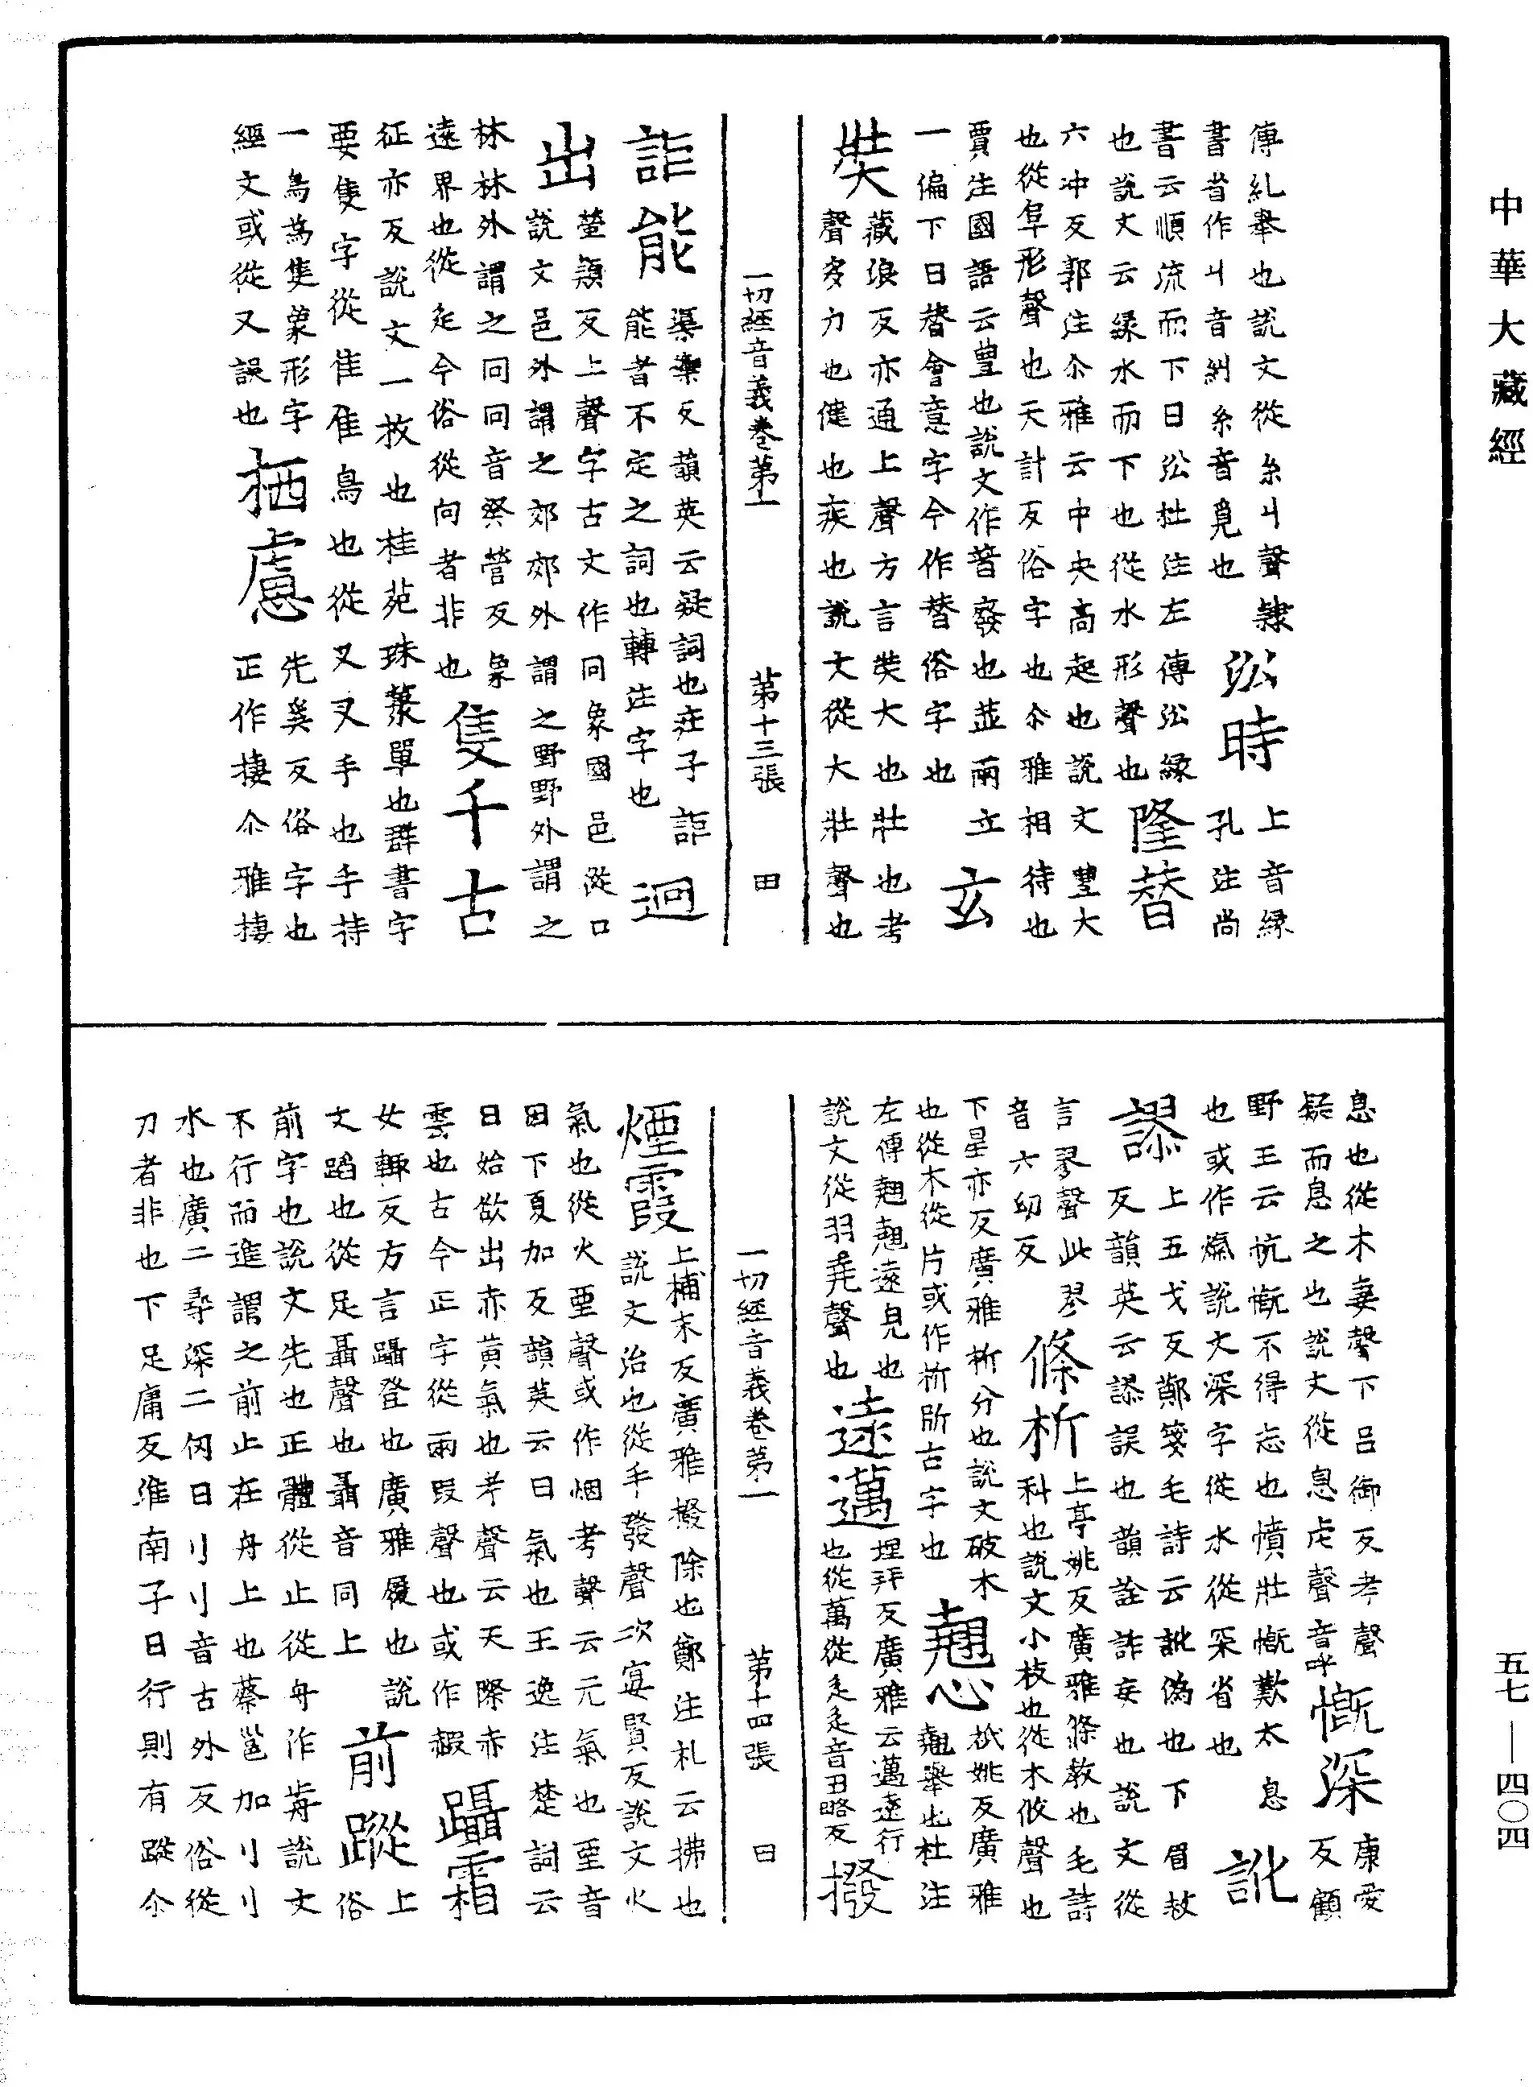 中華大藏經
傳糺舉也說文從糸丩聲隸
書省作丩音糾糸音覓也
㳂時
上音緣
孔注尚
書云順流而下曰㳂杜注左傳㳂緣
也說文云緣水而下也從水形聲也
隆替
六冲反郭注尒雅云中央高起也說文豐大
也從阜形聲也天計反俗字也尒雅相待也
賈注國語云豊也說文作朁癈也並兩立
一偏下曰朁會意字今作替俗字也
玄
奘
藏浪反亦通上聲方言奘大也壯也考
聲多力也健也疾也說文從大壯聲也
一切經音義卷第一 第十三張 田
詎能
渠禦反韻英云疑詞也庄子詎
能者不定之詞也轉注字也
迥
出
螢熲反上聲字古文作冋象國邑從口
說文邑外謂之郊郊外謂之野野外謂之
林林外謂之冋冋音癸營反象
遠界也從辵今俗從向者非也
隻千古
征亦反說文一枚也桂苑珠叢單也群書字
要隻字從隹隹鳥也從又又手也手持
一鳥為隻象形字
經文或從又誤也
栖慮
先奚反俗字也
正作棲尒雅棲
息也從木妻聲下呂御反考聲
疑而息之也說文從息虍聲音呼
慨深
康愛
反顧
野王云忼慨慨不得志也憤壯慨歎太息
也或作愾說文深字從水從罙省也
訛
謬
上五戈反鄭箋毛詩云訛偽也下眉救
反韻英云謬誤也韻詮詐妄也說文從
言翏聲此翏
音六幼反
條析
上亭姚反廣雅條教也毛詩
科也說文小枝也從木攸聲也
下星亦反廣雅析分也說文破木
也從木從片或作枂斦古字也
翹心
祇姚反廣雅
翹舉也杜注
左傳翹翹遠見也
說文從羽堯聲也
遠邁
埋拜反廣雅云邁遠行
也從萬從辵辵音丑略反
撥
一切經音義卷第一 第十四張 田
煙霞
上補末反廣雅撥除也鄭注札云拂也
說文治也從手發聲次宴賢反說文火
氣也從火垔聲或作烟考聲云元氣也垔音
因下夏加反韻英云日氣也王逸注楚詞云
日始欲出赤黃氣也考聲云天際赤
雲也古今正字從雨叚聲也或作赮
躡霜
女輒反方言躡登也廣雅履也說
文蹈也從足聶聲也聶音同上
前蹤
上
俗
前字也說文先也正體從止從舟作歬說文
不行而進謂之前止在舟上也蔡邕加刂刂
水也廣二尋深二仞曰刂刂音古外反俗從
刀者非也下足庸反淮南子曰行則有蹤尒
五七—四〇四